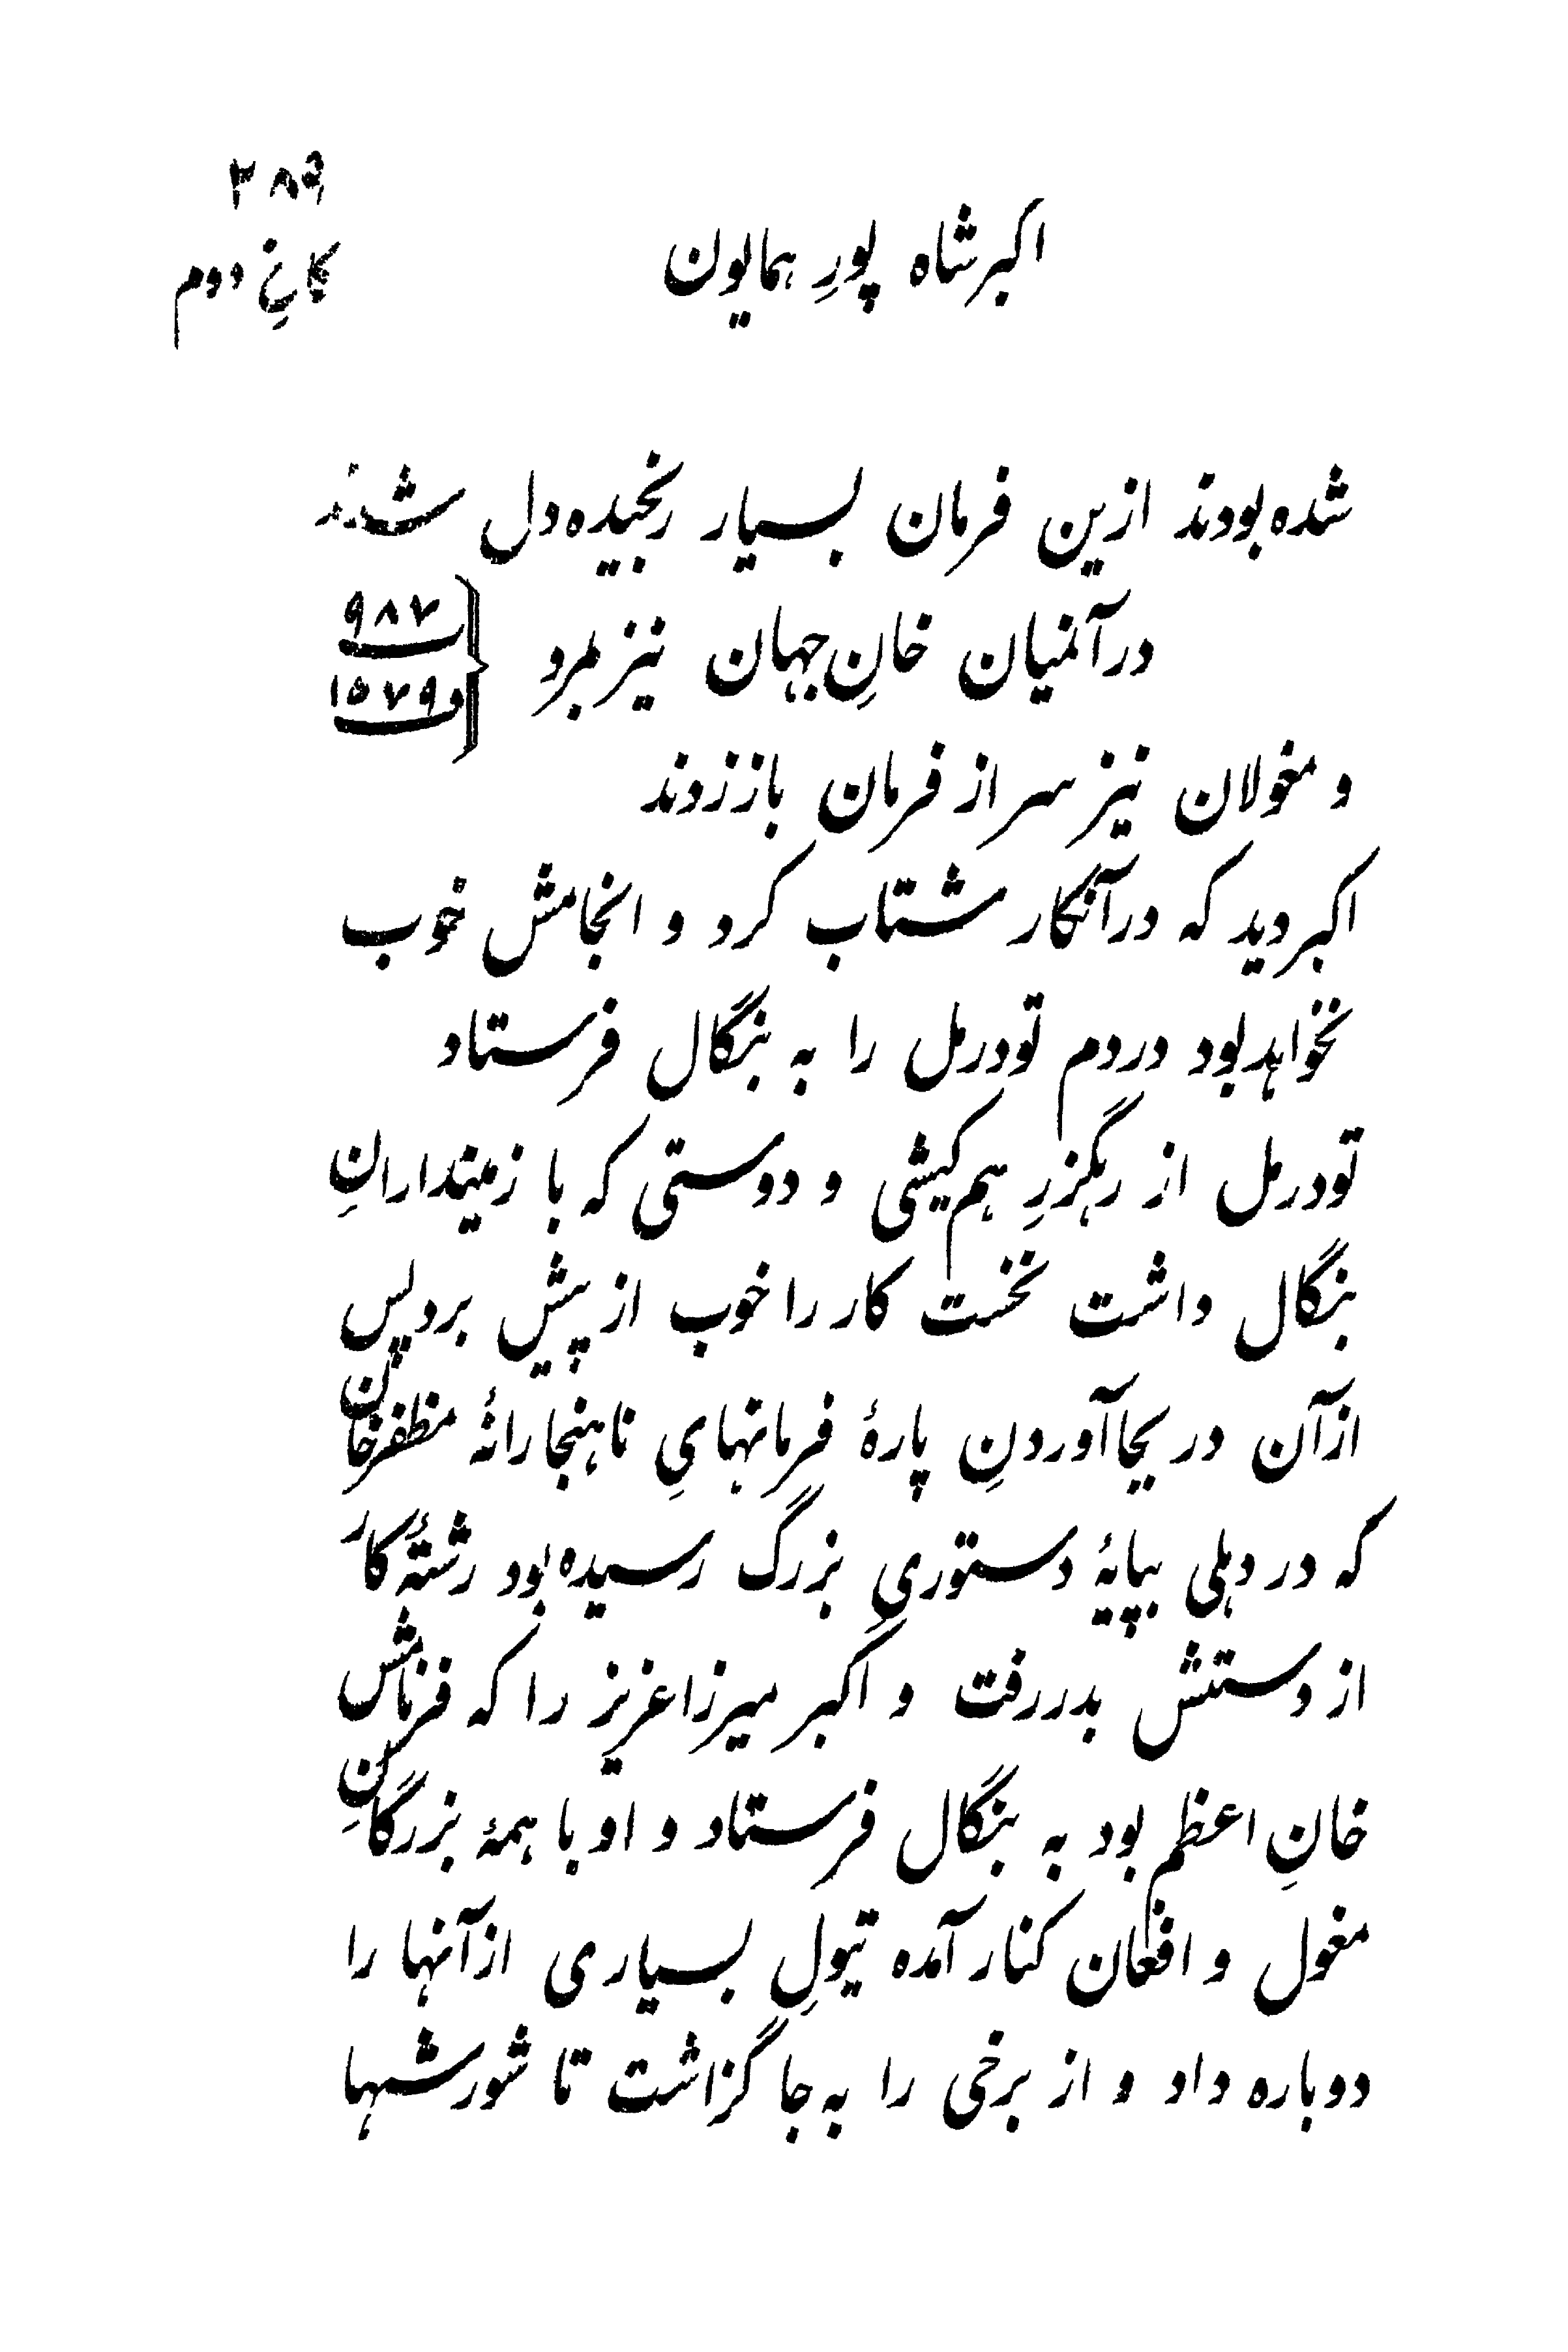 ۲۸۹
اکبرشاه پورِ همایون
کاخِ دوم
شده بودند ازین فرمان بسیار رنجیده دل شدند
درآنمیان خانِ جهان نیز بمرد { ۹۸۷
و ۱۵۷۹
و مغولان نیز سر از فرمان باززدند
اکبر دید که درآنکار شتاب کرد و انجامش خوب
نخواهد بود دردم تودرمل را به بنگال فرستاد
تودرمل از رهگزرِ هم کیشی و دوستی که با زمیندارانِ
بنگال داشت نخست کار را خوب از پیش برد پس
ازآن در بجاآوردنِ پارهٔ فرمانهایِ ناهنجارانهٔ مظفرخان
که در دهلی بپایهٔ دستوریِ بزرگ رسیده بود رشتهٔ کار
از دستش بدررفت و اکبر میرزا عزیز را که فرنامش
خانِ اعظم بود به بنگال فرستاد و او با همهٔ بزرگانِ
مغول و افغان کنار آمده تیولِ بسیاری ازآنها را
دوباره داد و از برخی را به جا گزاشت تا شورشها